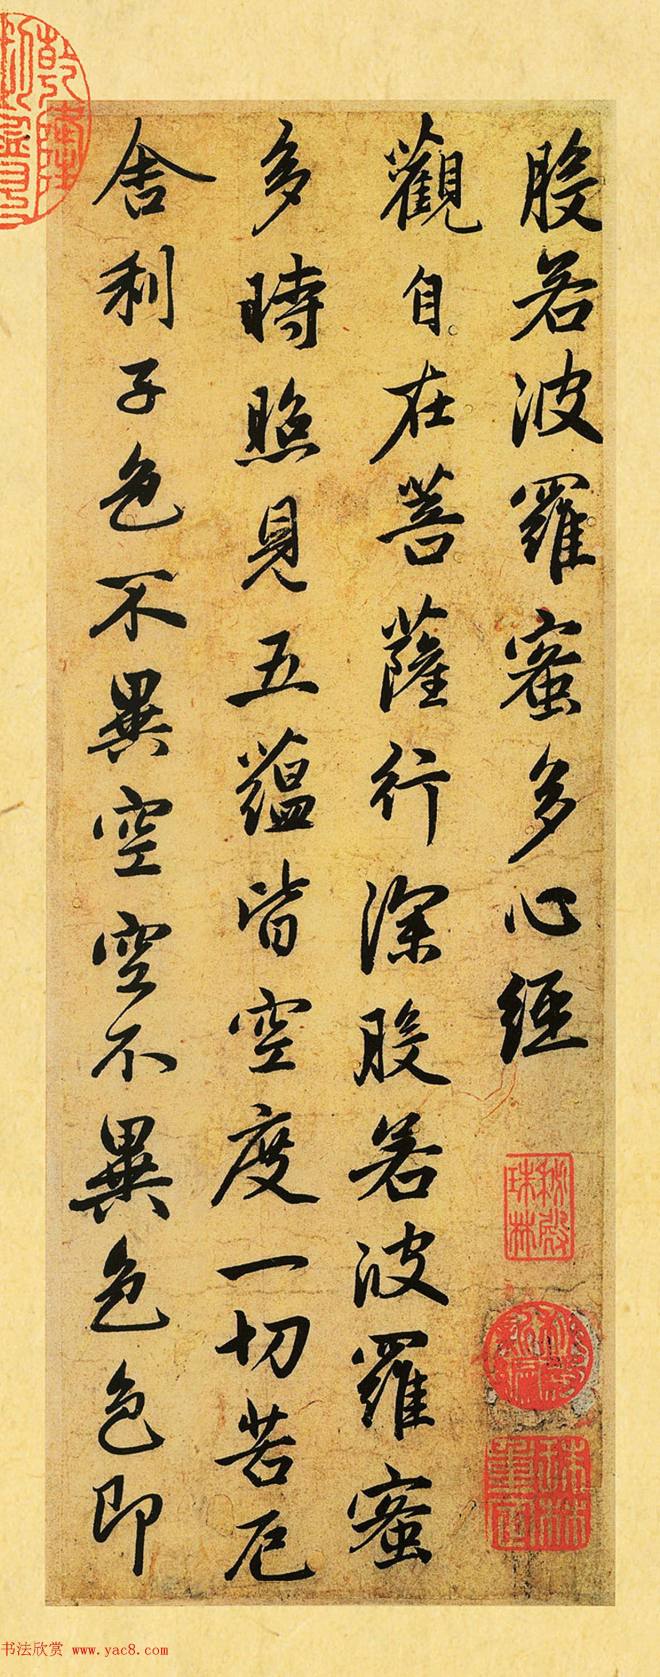 般若波羅蜜多心經
觀自在菩薩行深般若波羅蜜
多時照見五蘊皆空度一切苦厄
舍利子色不異空空不異色色即
秘殿珠林
秘殿新編
珠林重定
乾隆
书法欣赏 www.yac8.com